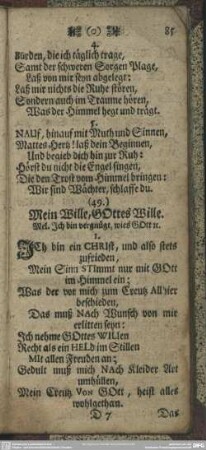 (o) 85
4.
Bürden, die ich täglich trage,
Samt der schweren Sorgen Plage,
Laß von mir seyn abgelegt:
Laß mir nichts die Ruhe stören,
Sondern auch im Traume hören,
Was der Himmel hegt und trägt.
5.
NAUF, hinauf mit Muth und Sinnen,
Mattes Hertz! laß dein Beginnen,
Und begieb dich hin zur Ruh:
Hörst du nicht die Engel singen,
Die den Trost vom Himmel bringen:
Wir sind Wächter, schlaffe du.
(49.)
Mein Wille, GOttes Wille.
Mel. Ich bin vergnügt, wies GOtt ꝛc.
1.
ICh bin ein CHRIST, und also stets
zufrieden,
Mein Sinn STImmt nur mit GOtt
im Himmel ein;
Was der vor mich zum Creutz Allhier
beschieden,
Das muß NAch Wunsch von mir
erlitten seyn:
Ich nehme GOttes WILlen
Recht als ein HELD im Stillen
Mit allen Freuden an;
Gedult muß mich NAch Kleider Art
umhüllen,
Mein Creutz VON GOtt, heist alles
wohlgethan.
D 7 Das